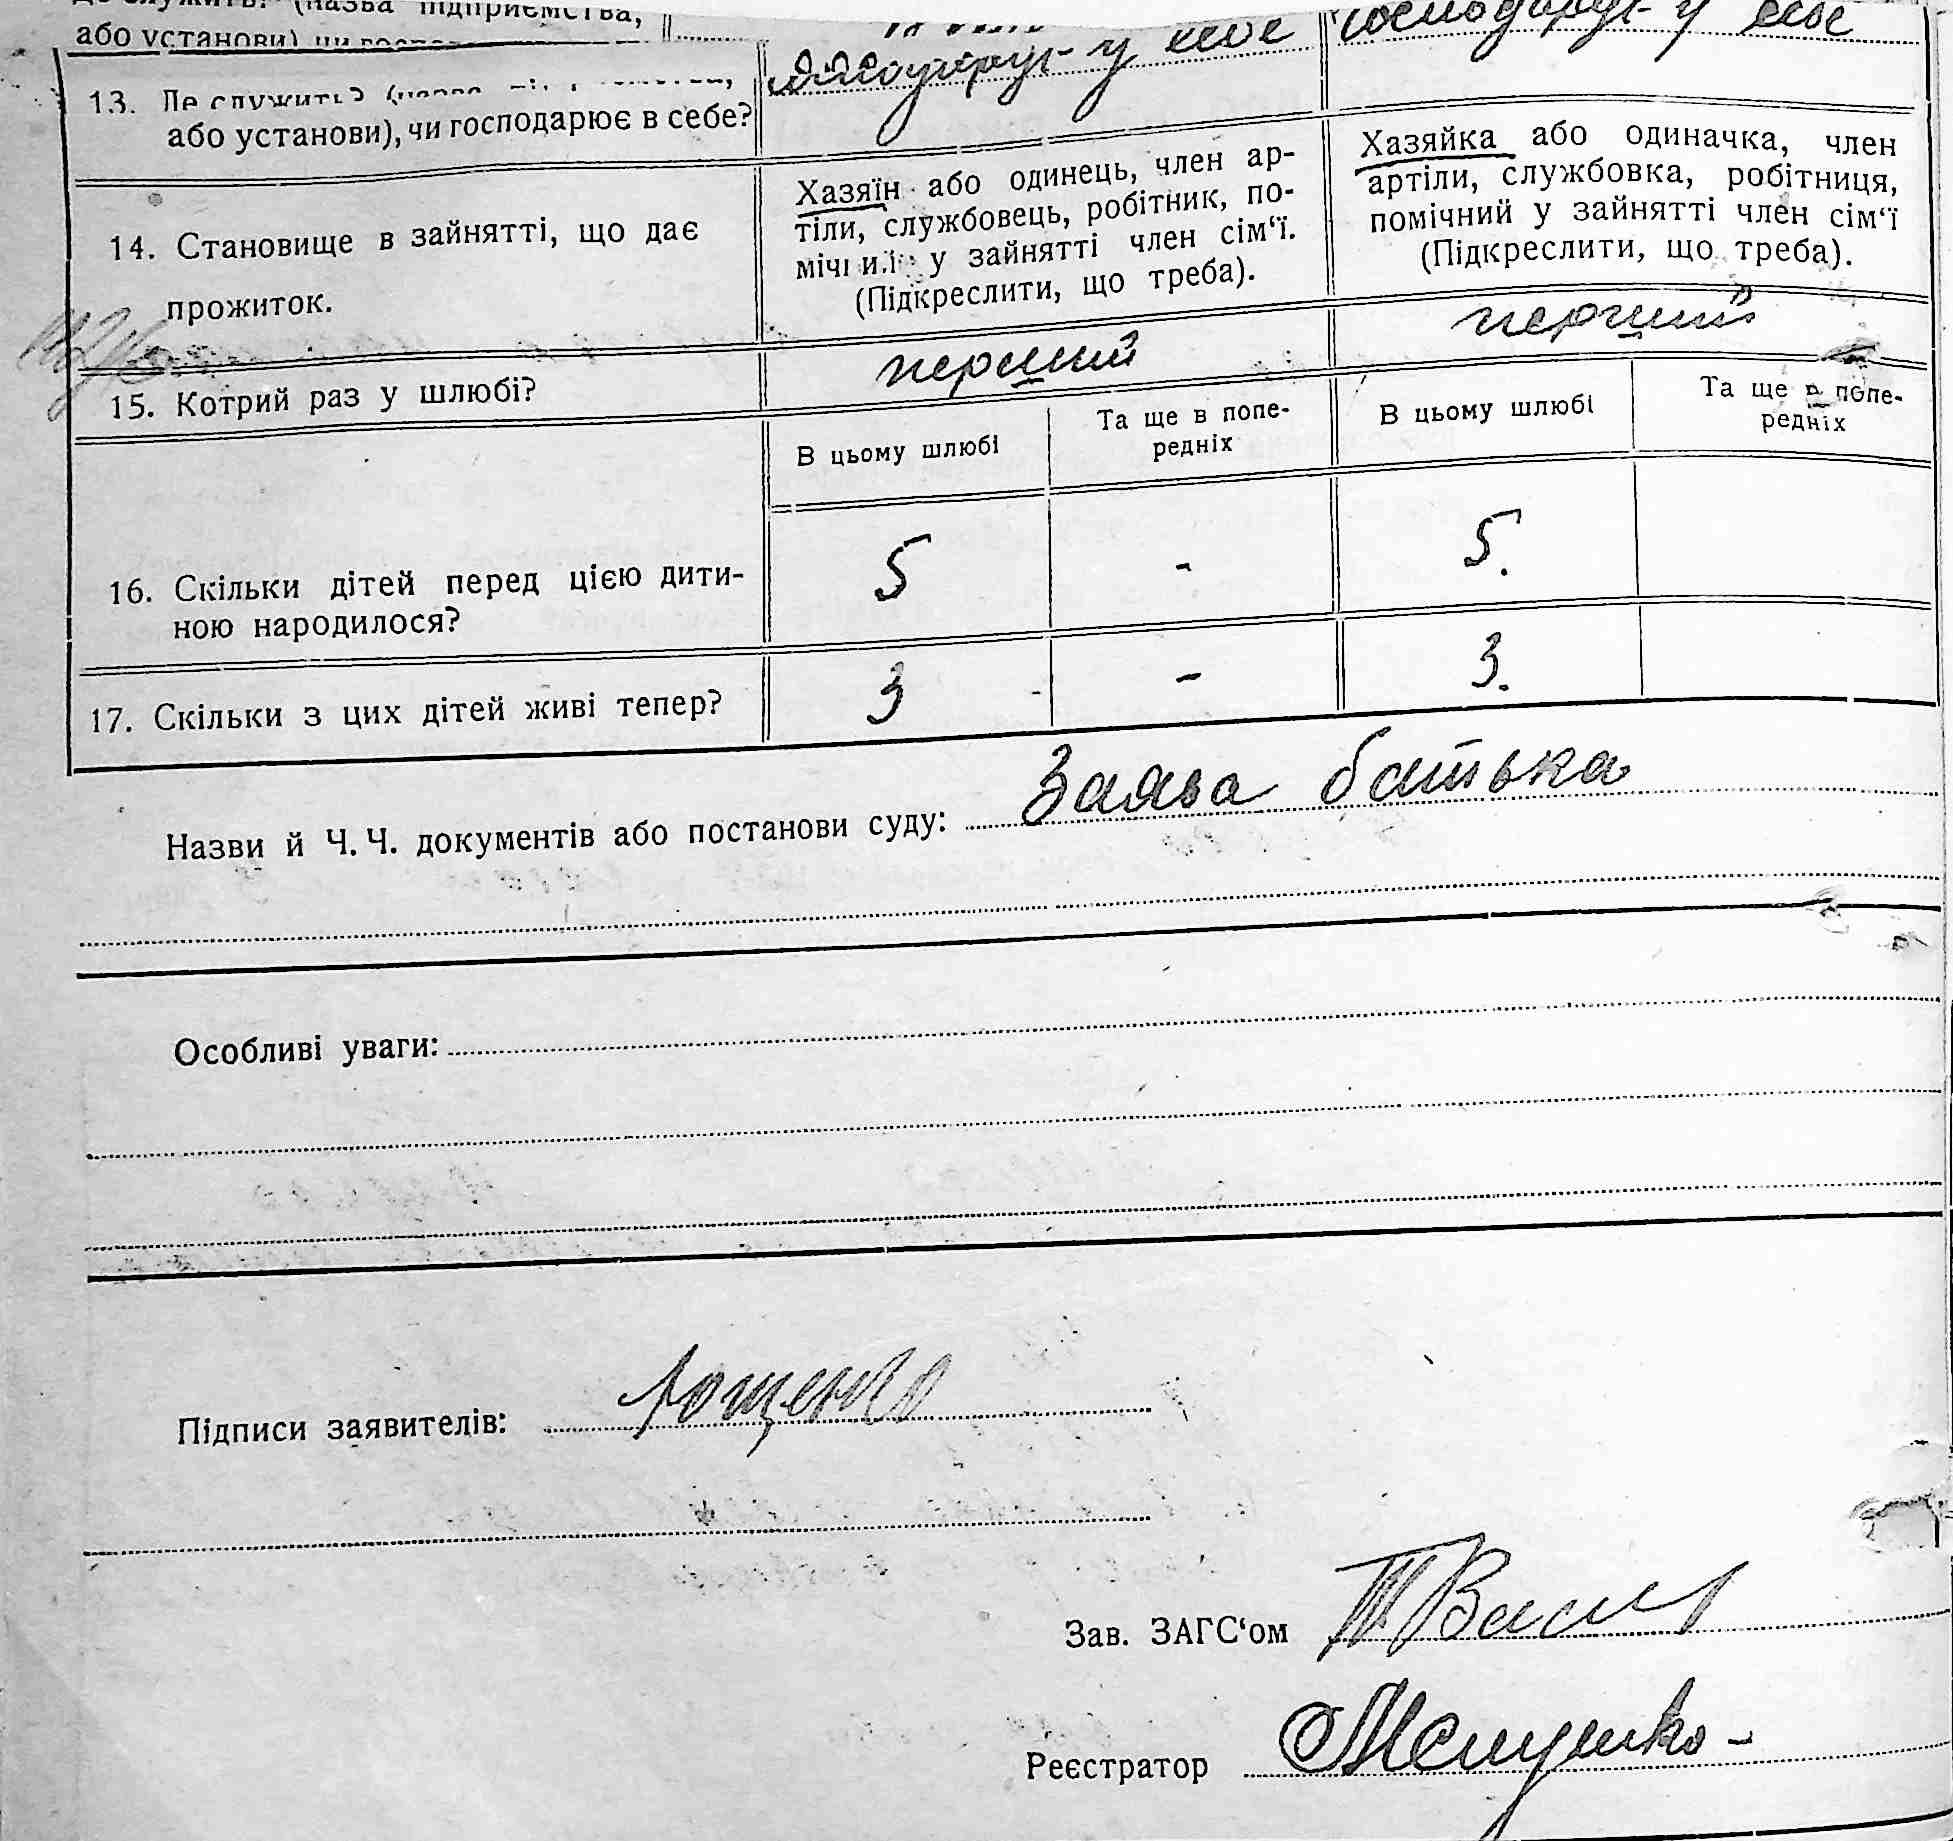 (назва підприємства,
або установи)
у себе господарує у себе
13. Де служить?
або установи), чи господарює в себе?
14. Становище в зайнятті, що дає
прожиток.
Хазяїн або одинець, член ар-
тіли, службовець, робітник, по-
мічний у зайнятті член сім‘ї.
(Підкреслити, що треба).
Хазяйка або одиначка, член
артіли, службовка, робітниця,
помічний у зайнятті член сім‘ї
(Підкреслити, що треба).
15. Котрий раз у шлюбі?
перший
перший
В цьому шлюбі
Та ще в попе-
редніх
В цьому шлюбі
Та ще в попе-
редніх
16. Скільки дітей перед цією дити-
ною народилося?
5 - 5.
17. Скільки з цих дітей живі тепер?
3 - 3.
Назви й Ч. Ч. документів або постанови суду: Заява батька
Особливі уваги:
Підписи заявителів:
Зав. ЗАГС‘ом
Реєстратор